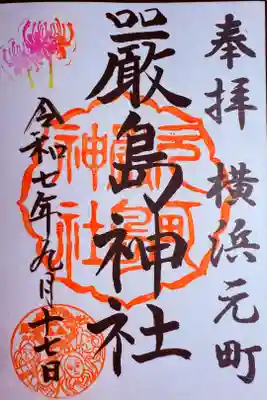 奉拝 横浜元町
嚴島神社
元町
嚴島
神社
令和七年九月十七日